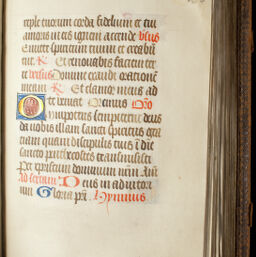 reple tuorum corda fidelium et tui
amoris in eis ignem accende versus
Emitte spiritum tuum et creabun
tur. R Et renovabis faciem ter
re versus Domine exaudi orationem
meam R Et clamor meus ad
te veniat Oremus Oro
Omnipotens sempiterne deus
da nobis illam sancti spiritus gra
ciam quam discipulis tuis in die
sancto penthecostes transmisisti
Per xpristum dominum nrm Am
Ad sextam Deus in adiutori
um Gloria pri. Hymnus